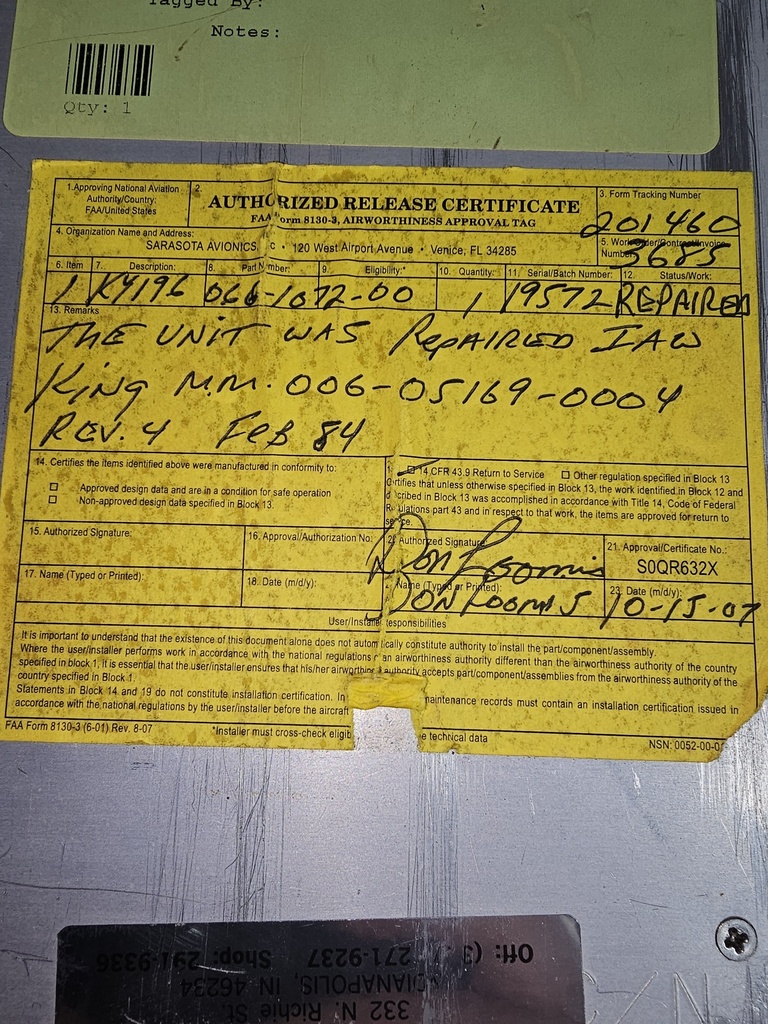 Tagged By:
Notes:
Qty: 1
1.Approving National Aviation
Authority/Country:
FAA/United States
2.
AUTHORIZED RELEASE CERTIFICATE
FAA Form 8130-3, AIRWORTHINESS APPROVAL TAG
3. Form Tracking Number
201460
4. Organization Name and Address:
SARASOTA AVIONICS, C • 120 West Airport Avenue • Venice, FL 34285
5. Work Order/Contract/Invoice
Number:
5685
6. Item 7. Description: 8. Part Number: 9. Eligibility:* 10. Quantity: 11. Serial/Batch Number: 12. Status/Work:
1 KY196 066-1072-00 1 19572 REPAIRED
13. Remarks
THE UNIT WAS REPAIRED IAW
KING M.M. 006-05169-0004
REV. 4 FEB 84
14. Certifies the items identified above were manufactured in conformity to:
Approved design data and are in a condition for safe operation
Non-approved design data specified in Block 13.
14 CFR 43.9 Return to Service Other regulation specified in Block 13
rtifies that unless otherwise specified in Block 13, the work identified in Block 12 and
cribed in Block 13 was accomplished in accordance with Title 14, Code of Federal
ulations part 43 and in respect to that work, the items are approved for return to
15. Authorized Signature:
16. Approval/Authorization No:
Authorized Signature
Don Loomis
21. Approval/Certificate No.:
S0QR632X
17. Name (Typed or Printed):
18. Date (m/d/y):
Name (Typed or Printed):
DON LOOMIS
23. Date (m/d/y):
10-15-07
User/Installer Responsibilities
It is important to understand that the existence of this document alone does not automatically constitute authority to install the part/component/assembly.
Where the user/installer performs work in accordance with the national regulations an airworthiness authority different than the airworthiness authority of the country
specified in block 1, it is essential that the user/installer ensures that his/her airworthiness authority accepts part/component/assemblies from the airworthiness authority of the
country specified in Block 1.
Statements in Block 14 and 19 do not constitute installation certification. In maintenance records must contain an installation certification issued in
accordance with the national regulations by the user/installer before the aircraft
FAA Form 8130-3 (6-01) Rev. 8-07 *Installer must cross-check eligib e technical data NSN: 0052-00-0
332 N. Richie St.
DIANAPOLIS, IN 46234
Off: (3 271-9237 Shop: 291-9336